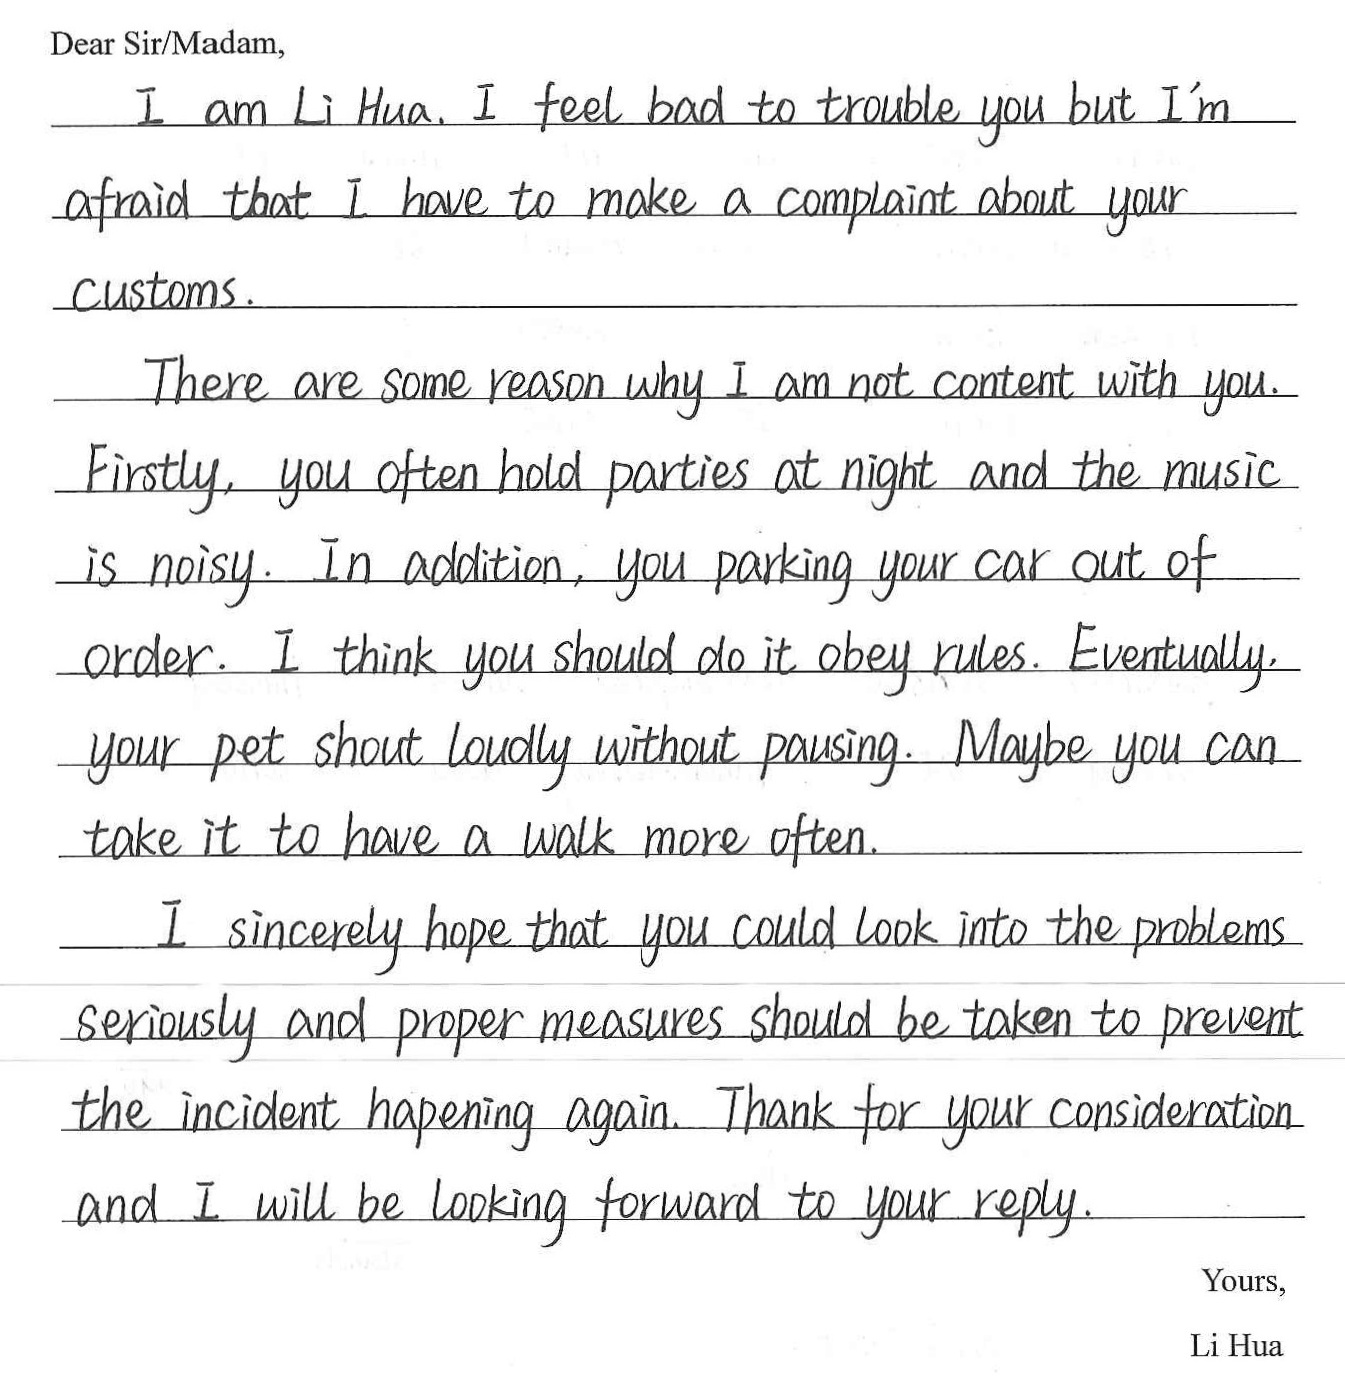 Dear Sir/Madam,
I am Li Hua. I feel bad to trouble you but I'm
afraid that I have to make a complaint about your
customs.
There are some reason why I am not content with you.
Firstly, you often hold parties at night and the music
is noisy. In addition, you parking your car out of
order. I think you should do it obey rules. Eventually,
your pet shout loudly without pausing. Maybe you can
take it to have a walk more often.
I sincerely hope that you could look into the problems
seriously and proper measures should be taken to prevent
the incident hapening again. Thank for your consideration
and I will be looking forward to your reply.
Yours,
Li Hua